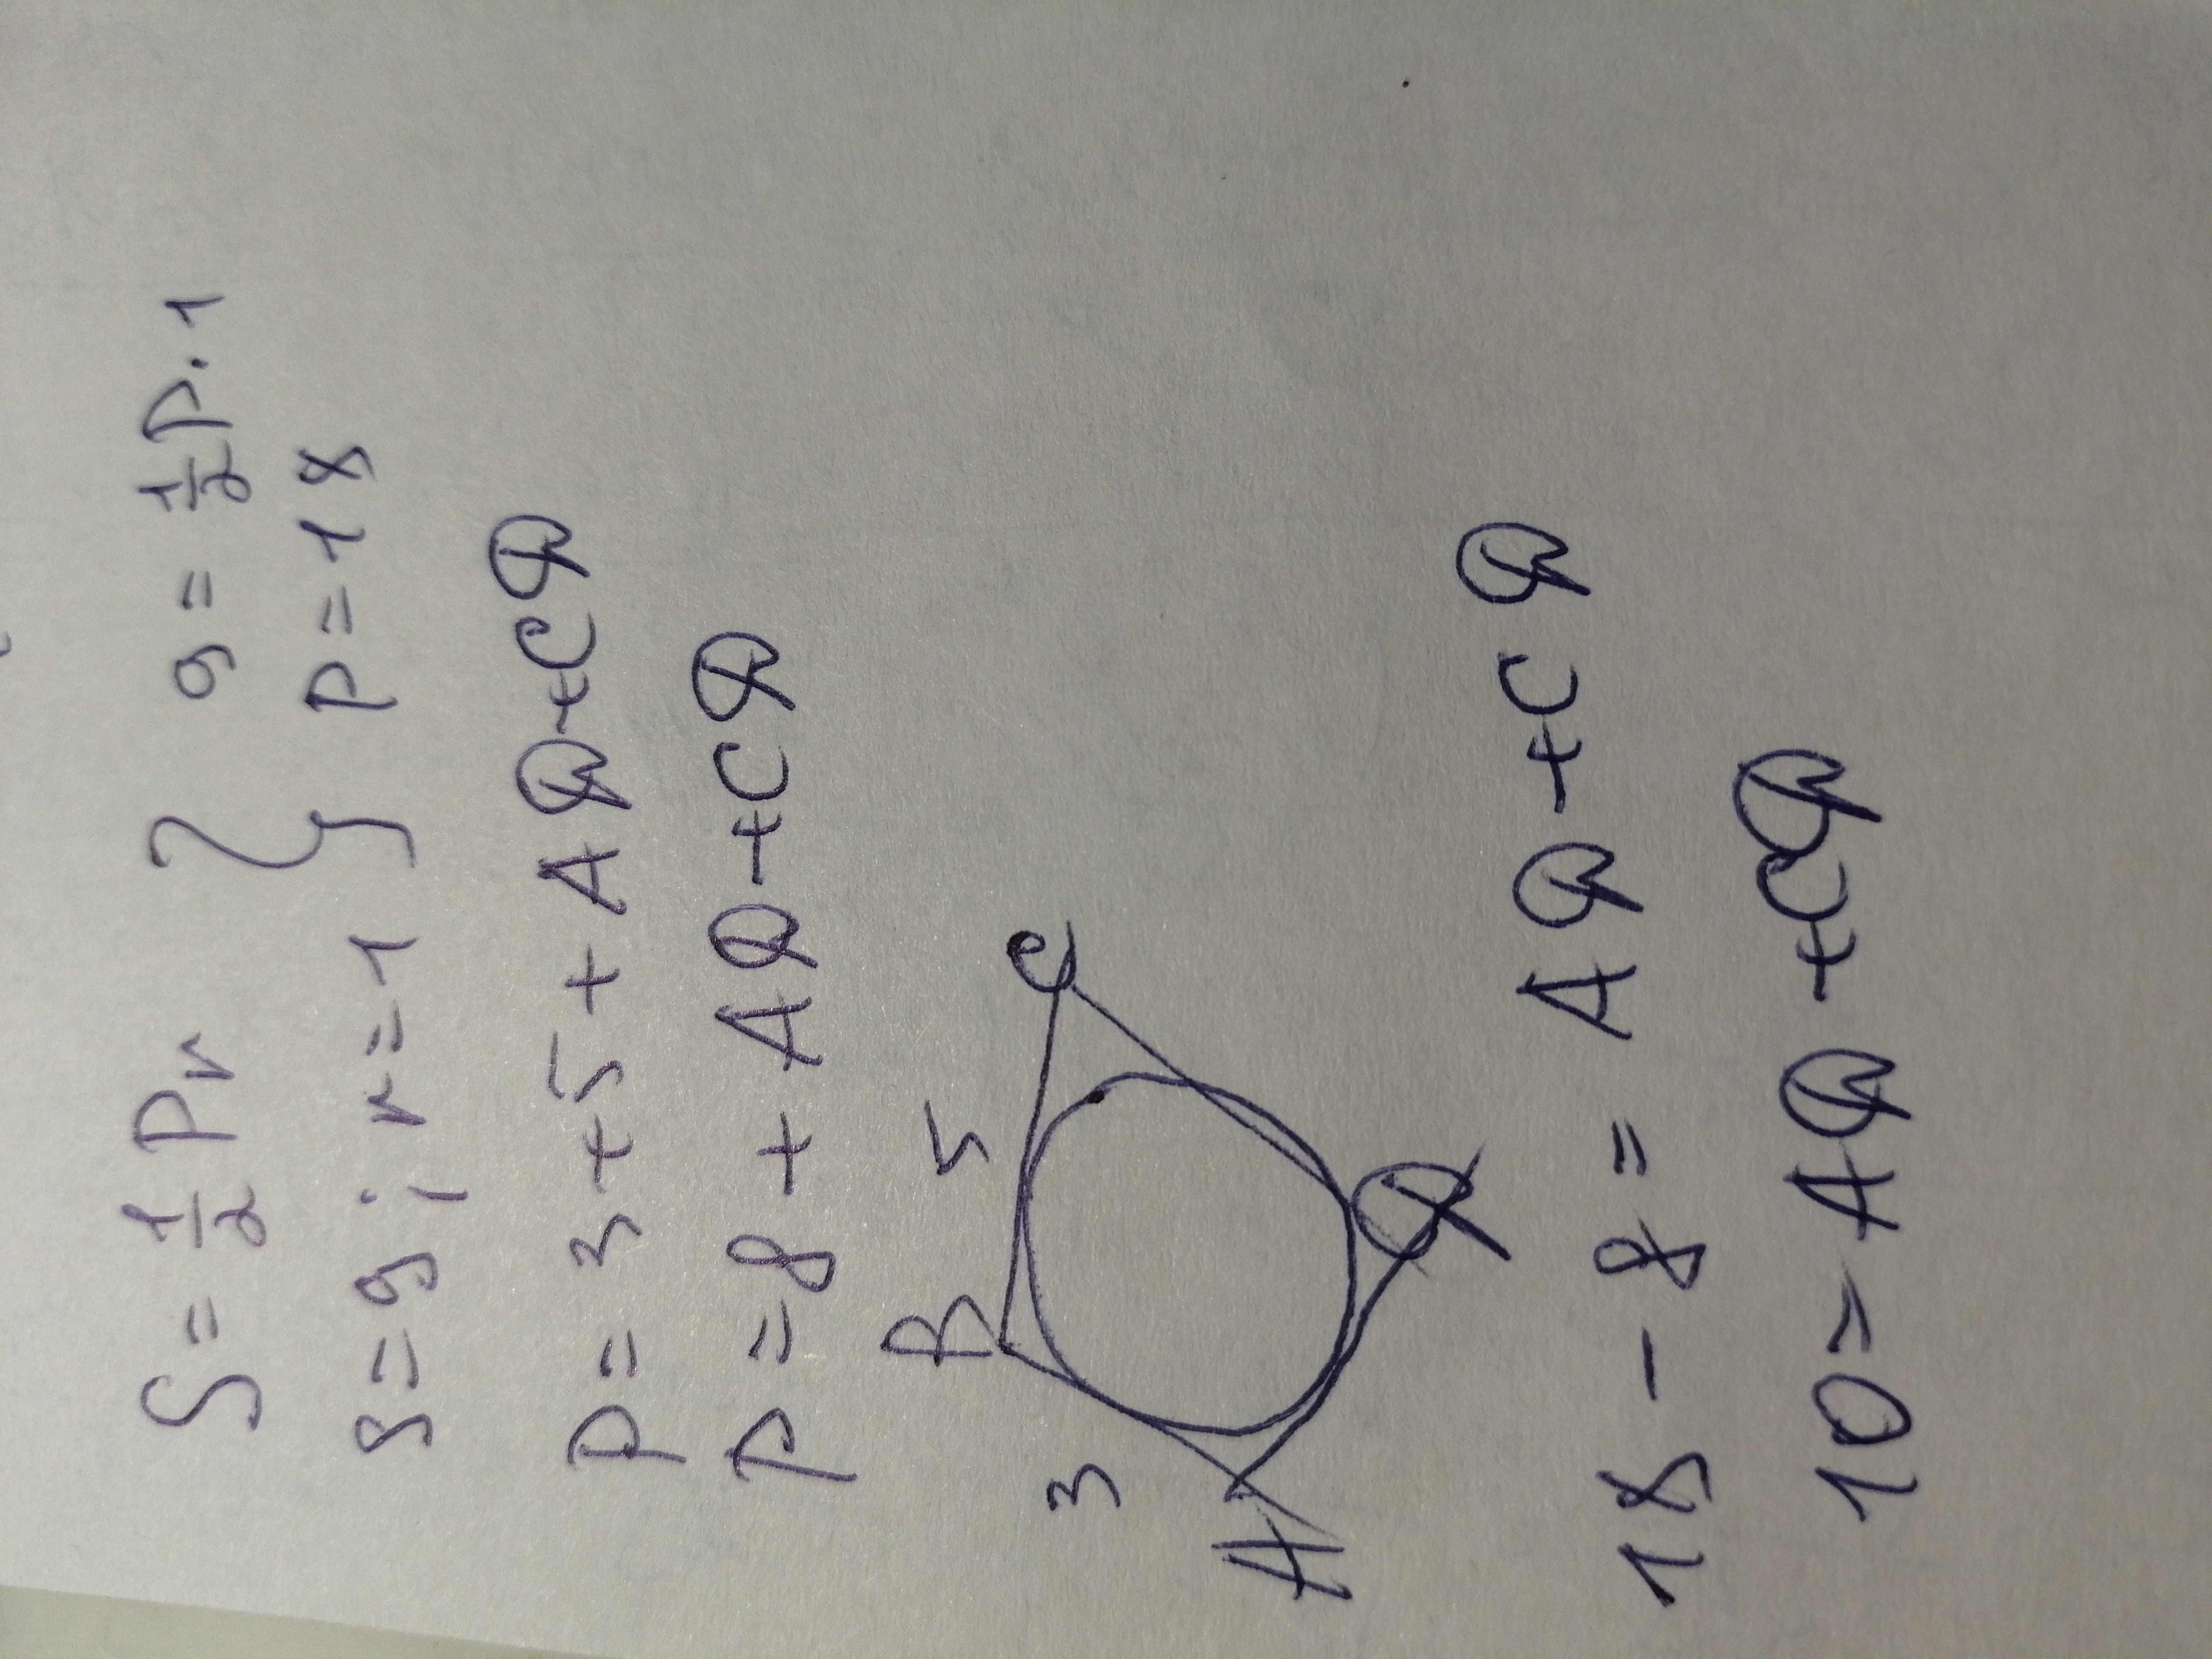 S = 1/2 Pr } 9 = 1/2 P · 1
S = 9 ; r = 1 } P = 18
P = 3 + 5 + AQ + CQ
P = 8 + AQ + CQ
B 5 C
3
A Q
18 - 8 = AQ + CQ
10 = AQ + CQ